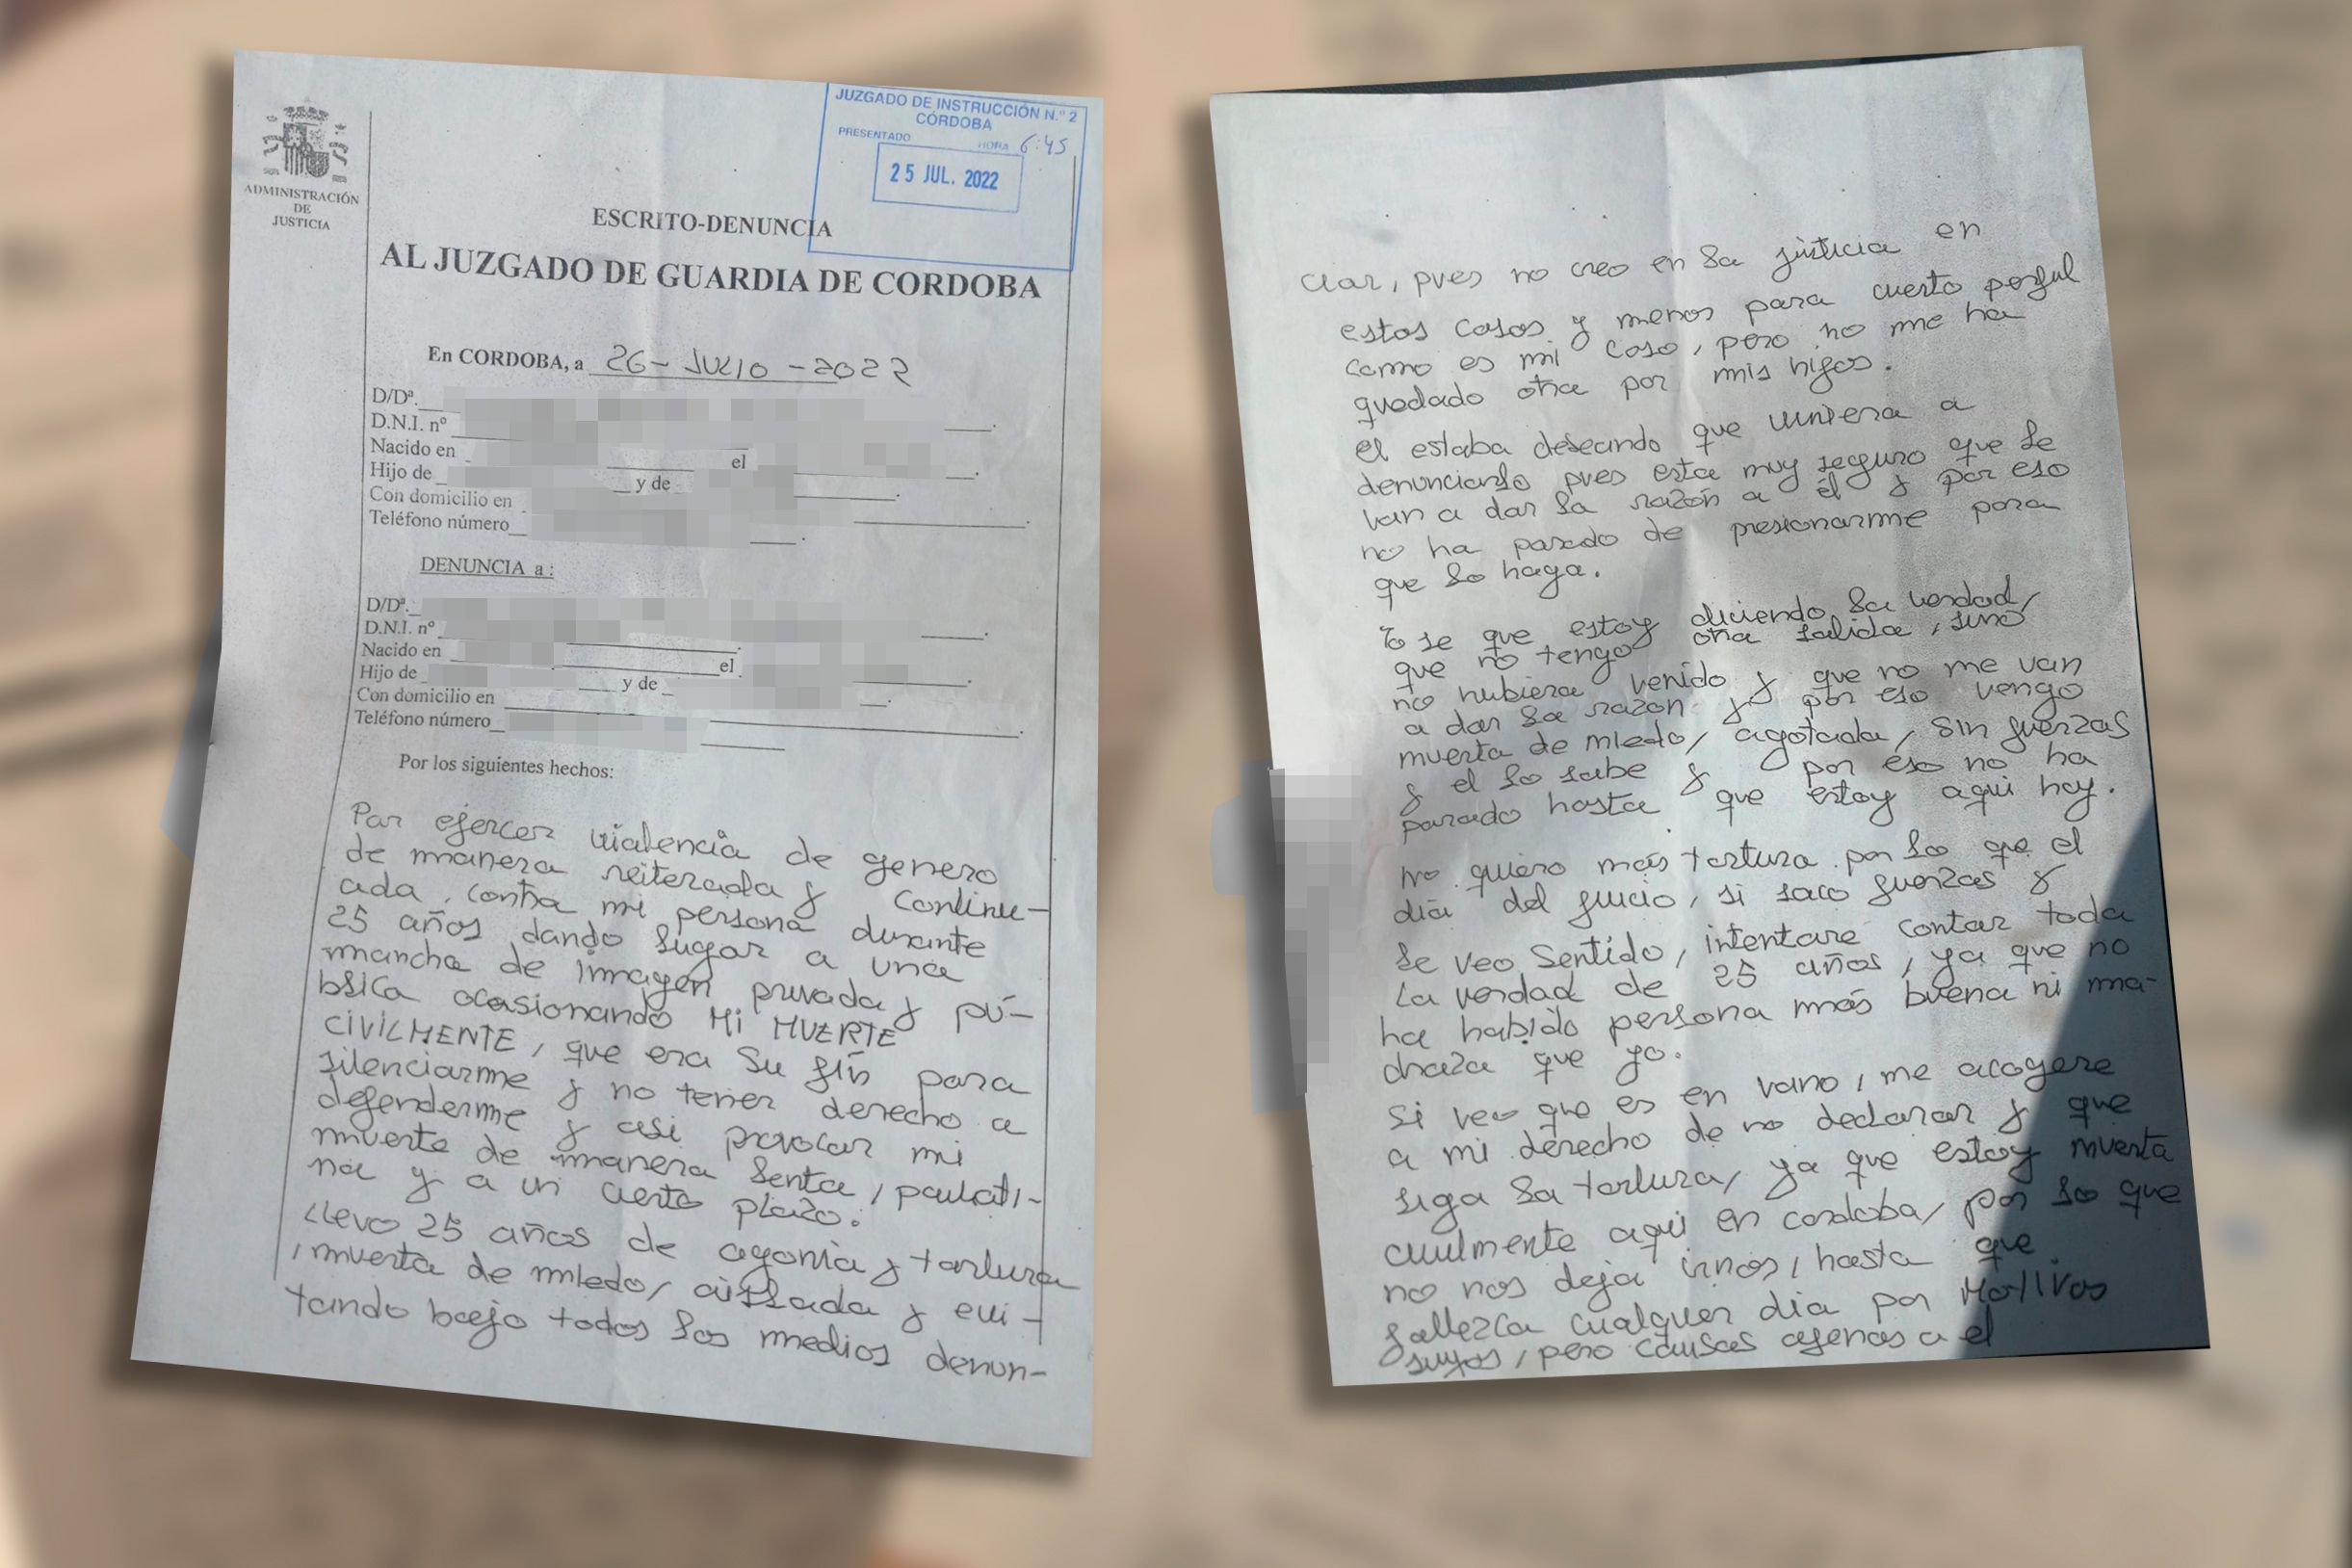 ADMINISTRACIÓN
DE
JUSTICIA
JUZGADO DE INSTRUCCIÓN N.º 2
CÓRDOBA
PRESENTADO
HORA 6:45
25 JUL. 2022
ESCRITO-DENUNCIA
AL JUZGADO DE GUARDIA DE CORDOBA
En CORDOBA, a 26-JULIO-2022
D/Dª.
D.N.I. nº
Nacido en el
Hijo de y de
Con domicilio en
Teléfono número
DENUNCIA a:
D/Dª.
D.N.I. nº
Nacido en el
Hijo de y de
Con domicilio en
Teléfono número
Por los siguientes hechos:
Por ejercer violencia de genero
de manera reiterada y continu-
ada, contra mi persona durante
25 años dando lugar a una
mancha de imagen privada y pú-
blica ocasionando MI MUERTE
CIVILMENTE, que era su fín para
silenciarme y no tener derecho a
defenderme y asi provocar mi
muerte de manera lenta, paulati-
na y a un cierto plazo.
LLevo 25 años de agonia y tortura
, muerta de miedo, aislada y evi-
tando bajo todos los medios denun-
ciar, pues no creo en la justicia en
estos casos y menos para cierto perful
como es mi caso, pero no me ha
quedado otra por mis hijos.
el estaba deseando que viniera a
denunciarlo pues esta muy seguro que le
van a dar la razón a él y por eso
no ha parado de presionarme para
que lo haga.
Yo se que estoy diciendo la verdad,
que no tengo otra salida, sino
no hubiera venido y que no me van
a dar la razon y por eso vengo
muerta de miedo, agotada, sin fuerzas
y el lo sabe y por eso no ha
parado hasta que estoy aqui hoy.
No quiero más tortura por lo que el
día del juicio, si saco fuerzas y
le veo sentido, intentare contar toda
La verdad de 25 años, ya que no
ha habido persona más buena ni ma-
draza que yo.
Si veo que es en vano, me acogere
a mi derecho de no declarar y que
siga la tortura, ya que estoy muerta
civilmente aqui en cordoba, por lo que
no nos deja irnos, hasta que
fallezca cualquier dia por Motivos
suyos, pero causas ajenas a el